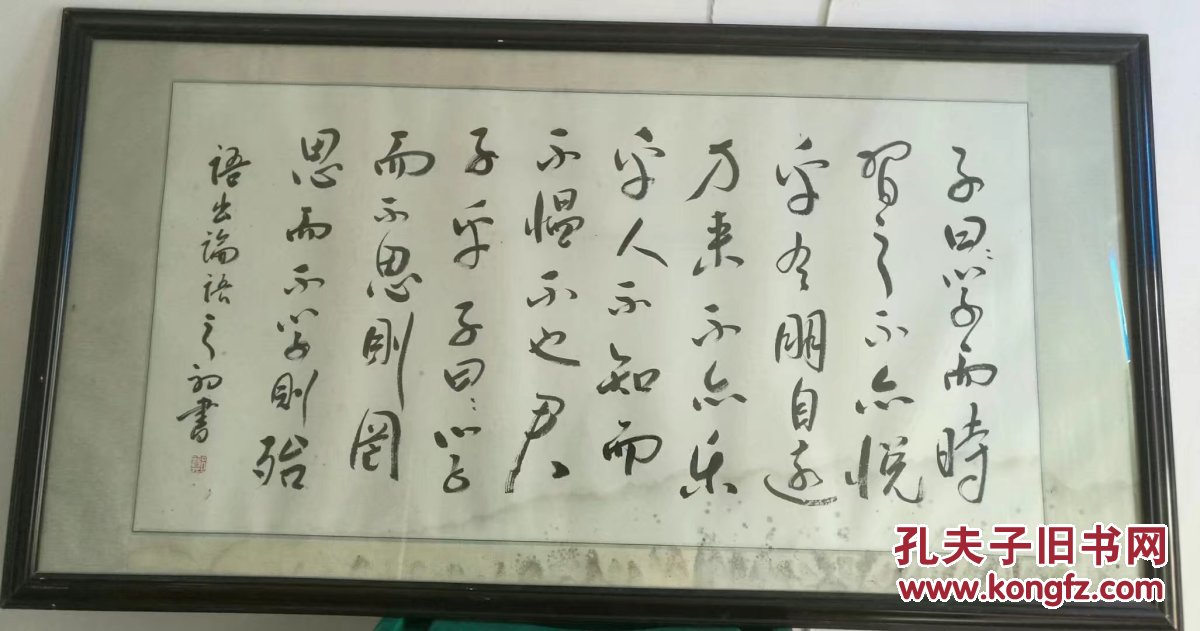 子曰:学而時
習之不亦悦
乎有朋自遠
方来不亦乐
乎人不知而
不愠不也君
子乎子曰:学
而不思則罔
思而不学則殆
語出論語之初書
孔夫子旧书网
www.kongfz.com